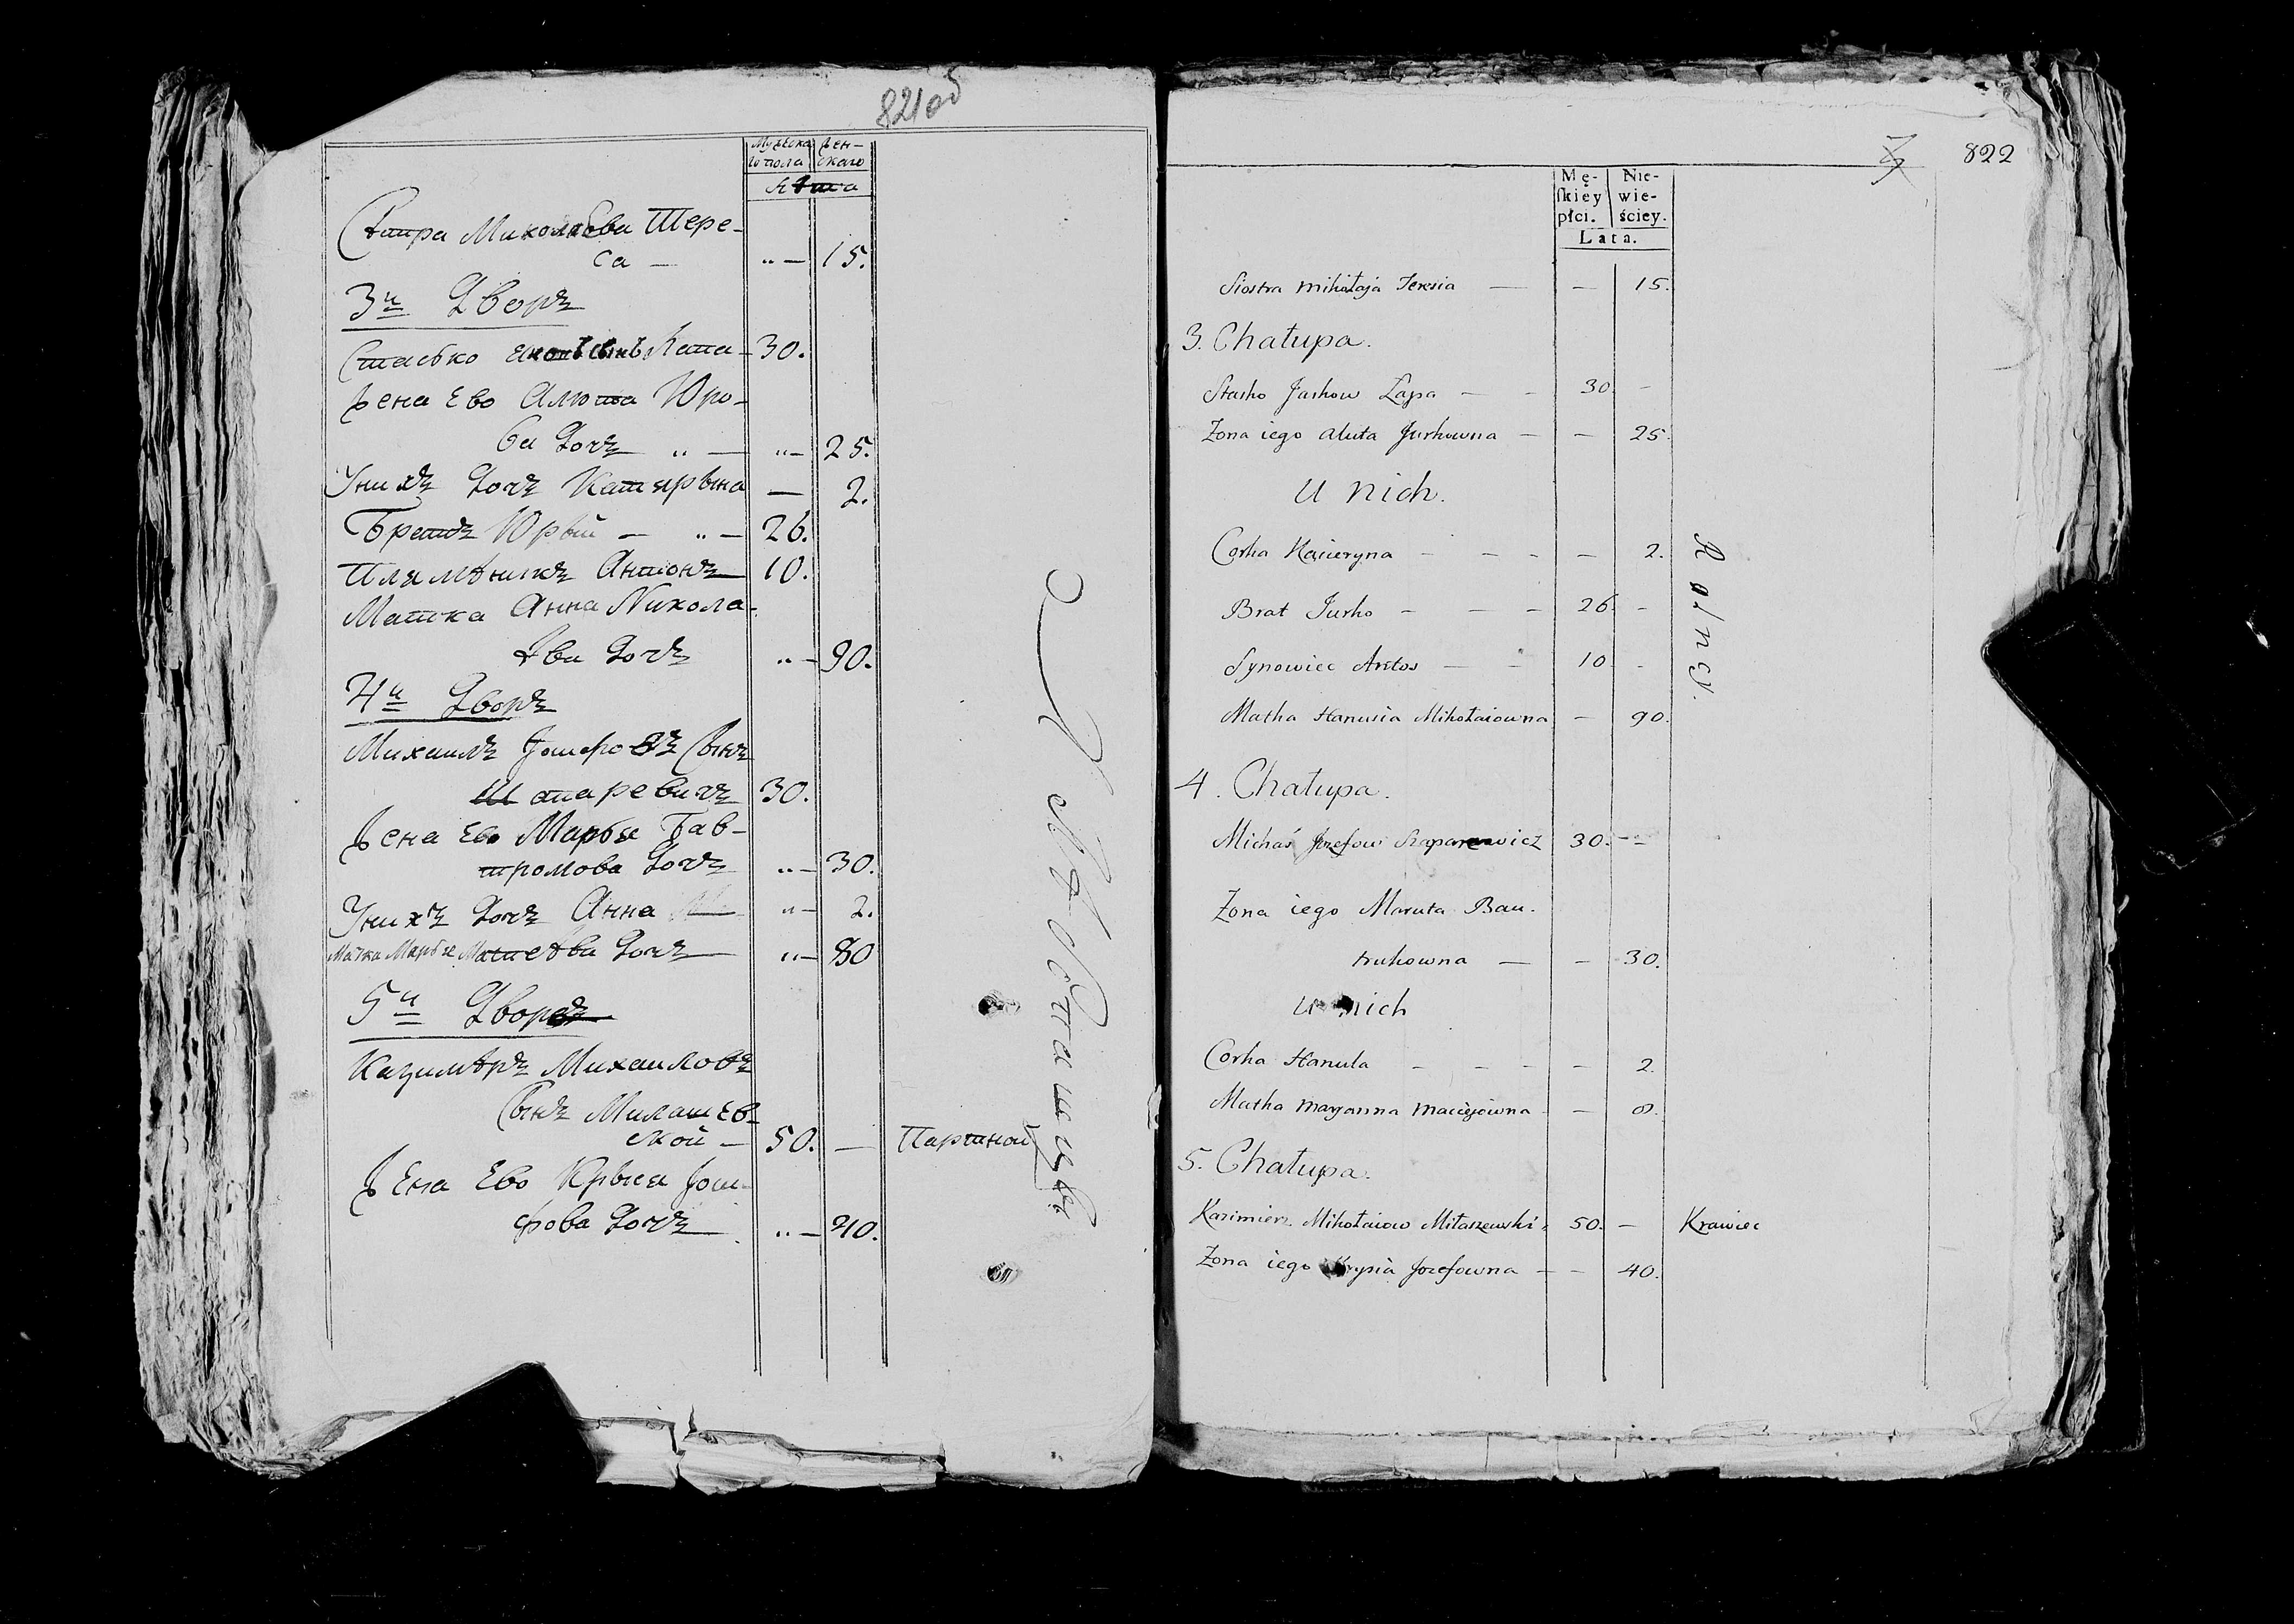 821об
Мужска
го пола
Жен-
скаго
Лѣта
Сестра Миколаева Тере-
са — „ — 15.
3й Дворъ
Стасько Лапа 30.
Жена Ево Алюта Юро-
ва Дочъ „ — „ — 25.
У них Дочъ Катярына — 2.
Братъ Юрый — „ — 26.
Племѣникъ Антонъ 10.
Матка Анна Никола-
ѣва Дочъ „ — 90.
4й Дворъ
Михаилъ Іозефовъ Сынъ
Шапаревичъ 30.
Жена Ево Марья Бав-
тромова Дочъ „ — 30.
У нихъ Дочъ Анна „ — 2.
Матка Марья Матеева Дочъ „ — 80
5й Дворъ
Казимѣръ Михаиловъ
Сынъ Милашев-
ской — 50. — Партной
Жена Ево Крыся Іозе-
фова Дочъ „ — 40.
822
Mę-
skiey
płci.
Nie-
wie-
ściey.
Lata.
Siostra Mikołaja Teresia — — 15.
3. Chałupa.
Stasko Jaskow Łapa — - 30. -
Zona iego Aluta Jurkowna — — 25.
U nich.
Corka Kacieryna - — - — 2.
Brat Jurko - — - 26. -
Synowiec Antos — - 10. -
Matka Hanusia Mikołaiowna — 90.
Rolncy.
4. Chałupa.
Michaś Jozefow Szaparewicz 30. --
Zona iego Maruta Bau-
trukowna — — 30.
U nich
Corka Hanula - - - — 2.
Matka Maryanna Maciejowna — 8.
5. Chałupa.
Kazimierz Mikołaiow Miłaszewski 50. — Krawiec
Zona iego Krysia Jozefowna — — 40.